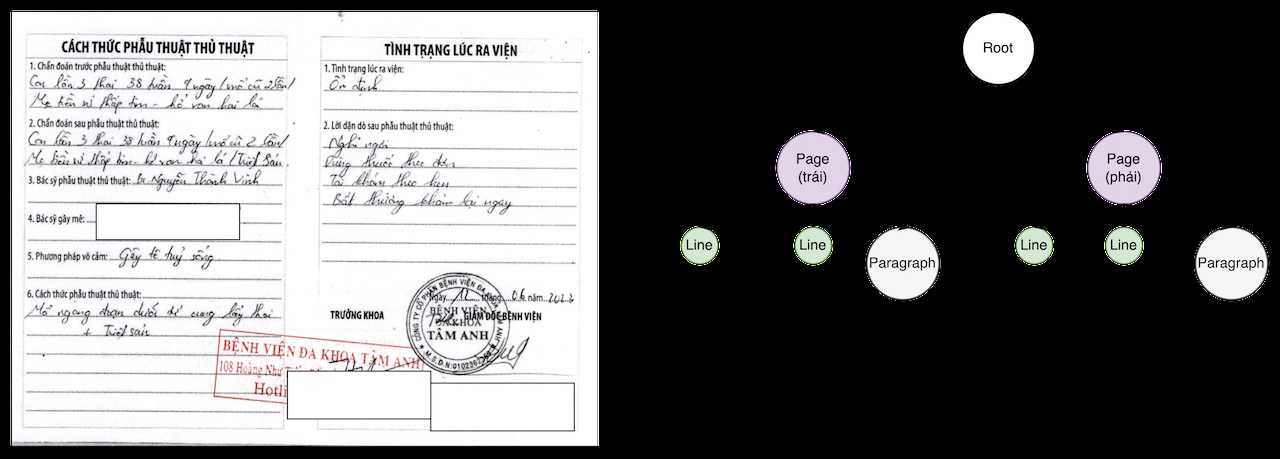 CÁCH THỨC PHẪU THUẬT THỦ THUẬT
1. Chẩn đoán trước phẫu thuật thủ thuật:
Con lần 3 thai 38 tuần 4 ngày/mổ cũ 2 lần/
Mẹ tiền sử thấp tim - hở van hai lá
2. Chẩn đoán sau phẫu thuật thủ thuật:
Con lần 3 thai 38 tuần 4 ngày/mổ cũ 2 lần/
Mẹ tiền sử thấp tim - hở van hai lá/Triệt sản.
3. Bác sỹ phẫu thuật thủ thuật: Bs Nguyễn Thành Vinh
4. Bác sỹ gây mê:
5. Phương pháp vô cảm: Gây tê tuỷ sống
6. Cách thức phẫu thuật thủ thuật:
Mổ ngang đoạn dưới tử cung lấy thai
+ Triệt sản
TÌNH TRẠNG LÚC RA VIỆN
1. Tình trạng lúc ra viện:
Ổn định
2. Lời dặn dò sau phẫu thuật thủ thuật:
Nghỉ ngơi
Dùng thuốc theo đơn
Tái khám theo hẹn
Bất thường khám lại ngay
Ngày 12 tháng 06 năm
TRƯỞNG KHOA
GIÁM ĐỐC BỆNH VIỆN
CÔNG TY CỔ PHẦN BỆNH VIỆN ĐA KHOA TÂM ANH
BỆNH VIỆN
ĐA KHOA
TÂM ANH
BỆNH VIỆN ĐA KHOA TÂM ANH
108 Hoàng Như
Root
Page
(trái)
Page
(phải)
Line
Line
Paragraph
Line
Line
Paragraph